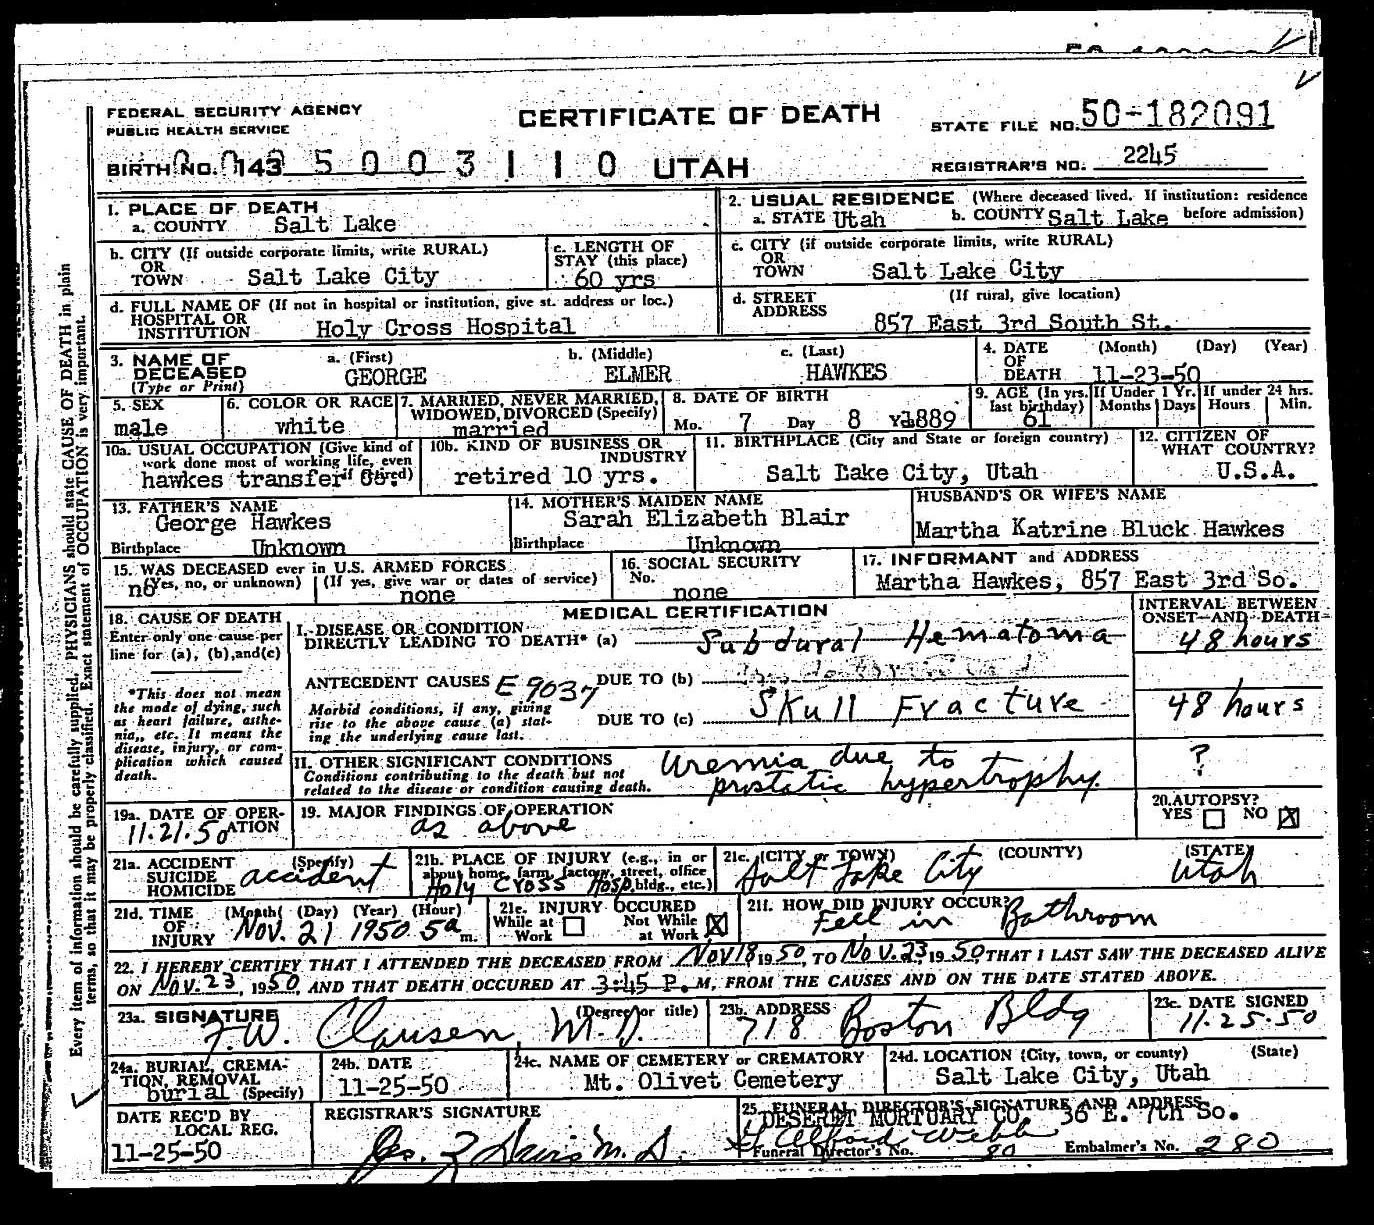 FEDERAL SECURITY AGENCY
PUBLIC HEALTH SERVICE
CERTIFICATE OF DEATH
STATE FILE NO. 50-182091
BIRTH NO. 143 5 0 0 3 1 1 0 UTAH
REGISTRAR'S NO. 2245
Every item of information should be carefully supplied. PHYSICIANS should state CAUSE OF DEATH in plain
terms, so that it may be properly classified. Exact statement of OCCUPATION is very important.
1. PLACE OF DEATH
a. COUNTY Salt Lake
2. USUAL RESIDENCE (Where deceased lived. If institution: residence
a. STATE Utah b. COUNTY Salt Lake before admission)
b. CITY (If outside corporate limits, write RURAL)
OR
TOWN Salt Lake City
c. LENGTH OF
STAY (this place)
60 yrs
c. CITY (if outside corporate limits, write RURAL)
OR
TOWN Salt Lake City
d. FULL NAME OF (If not in hospital or institution, give st. address or loc.)
HOSPITAL OR
INSTITUTION Holy Cross Hospital
d. STREET (If rural, give location)
ADDRESS
857 East 3rd South St.
3. NAME OF
DECEASED
(Type or Print)
a. (First) b. (Middle) c. (Last)
GEORGE ELMER HAWKES
4. DATE (Month) (Day) (Year)
OF
DEATH 11-23-50
5. SEX
male
6. COLOR OR RACE
white
7. MARRIED, NEVER MARRIED,
WIDOWED, DIVORCED (Specify)
married
8. DATE OF BIRTH
Mo. 7 Day 8 Yr 1889
9. AGE (In yrs.
last birthday)
61
If Under 1 Yr.
Months Days
If under 24 hrs.
Hours Min.
10a. USUAL OCCUPATION (Give kind of
work done most of working life, even
if retired)
hawkes transfer co.
10b. KIND OF BUSINESS OR
INDUSTRY
retired 10 yrs.
11. BIRTHPLACE (City and State or foreign country)
Salt Lake City, Utah
12. CITIZEN OF
WHAT COUNTRY?
U.S.A.
13. FATHER'S NAME
George Hawkes
Birthplace Unknown
14. MOTHER'S MAIDEN NAME
Sarah Elizabeth Blair
Birthplace Unknown
HUSBAND'S OR WIFE'S NAME
Martha Katrine Bluck Hawkes
15. WAS DECEASED ever in U.S. ARMED FORCES
(Yes, no, or unknown) (If yes, give war or dates of service)
no none
16. SOCIAL SECURITY
No.
none
17. INFORMANT and ADDRESS
Martha Hawkes, 857 East 3rd So.
18. CAUSE OF DEATH
Enter only one cause per
line for (a), (b), and (c)
*This does not mean
the mode of dying, such
as heart failure, asthe-
nia, etc. It means the
disease, injury, or com-
plication which caused
death.
MEDICAL CERTIFICATION
INTERVAL BETWEEN
ONSET AND DEATH
I. DISEASE OR CONDITION
DIRECTLY LEADING TO DEATH* (a) Subdural Hematoma 48 hours
ANTECEDENT CAUSES E 9037 DUE TO (b)
Morbid conditions, if any, giving
rise to the above cause (a) stat-
ing the underlying cause last.
DUE TO (c) Skull Fracture 48 hours
II. OTHER SIGNIFICANT CONDITIONS
Conditions contributing to the death but not
related to the disease or condition causing death.
Uremia due to
prostatic hypertrophy. ?
19a. DATE OF OPER-
ATION
11.21.50
19. MAJOR FINDINGS OF OPERATION
as above
20. AUTOPSY?
YES NO X
21a. ACCIDENT (Specify)
SUICIDE
HOMICIDE
accident
21b. PLACE OF INJURY (e.g., in or
about home, farm, factory, street, office
bldg., etc.)
Holy Cross Hosp
21c. (CITY or TOWN) (COUNTY) (STATE)
Salt Lake City Utah
21d. TIME (Month) (Day) (Year) (Hour)
OF
INJURY Nov. 21 1950 5a m.
21e. INJURY OCCURED
While at Work Not While at Work X
21f. HOW DID INJURY OCCUR?
Fell in Bathroom
22. I HEREBY CERTIFY THAT I ATTENDED THE DECEASED FROM Nov 18 1950, TO Nov. 23, 1950 THAT I LAST SAW THE DECEASED ALIVE
ON Nov. 23, 1950, AND THAT DEATH OCCURED AT 3:45 P. M, FROM THE CAUSES AND ON THE DATE STATED ABOVE.
23a. SIGNATURE (Degree or title)
F.W. Clausen, M.D.
23b. ADDRESS
718 Boston Bldg
23c. DATE SIGNED
11.25.50
24a. BURIAL, CREMA-
TION, REMOVAL
burial (Specify)
24b. DATE
11-25-50
24c. NAME OF CEMETERY or CREMATORY
Mt. Olivet Cemetery
24d. LOCATION (City, town, or county) (State)
Salt Lake City, Utah
DATE REC'D BY
LOCAL REG.
11-25-50
REGISTRAR'S SIGNATURE
25. FUNERAL DIRECTOR'S SIGNATURE AND ADDRESS
DESERET MORTUARY CO. 36 E. 7th So.
Webb
Funeral Director's No. 80 Embalmer's No. 280